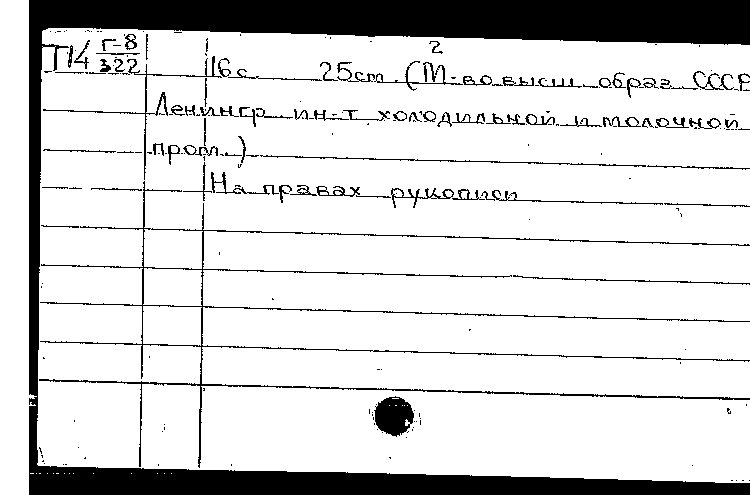 2
П14 Г-8
322
16 с. 25см. (М-во высш. образ. СССР
Ленингр. ин-т холодильной и молочной
пром.)
На правах рукописи